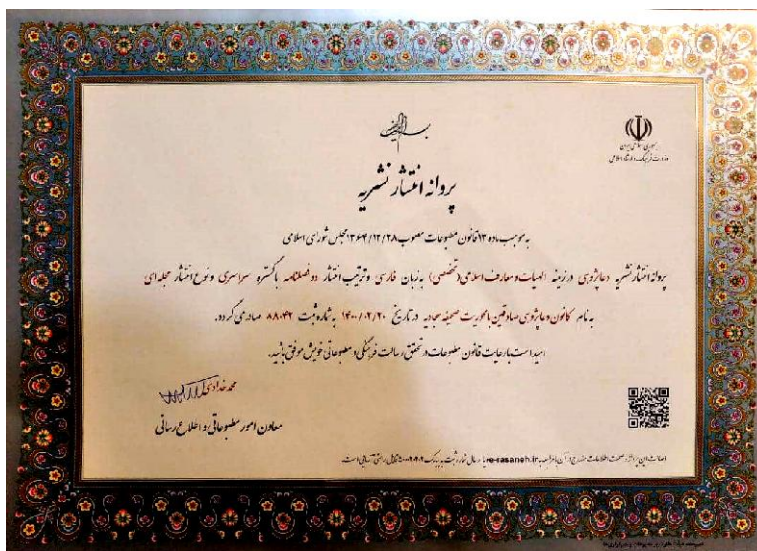 بسم الله الرحمن الرحیم
جمهوری اسلامی ایران
وزارت فرهنگ و ارشاد اسلامی
پروانه انتشار نشریه
به موجب ماده ۱۳ قانون مطبوعات مصوب ۱۳۶۴/۱۲/۲۸ مجلس شورای اسلامی
پروانه انتشار نشریه دعاپژوهی در زمینه الهیات و معارف اسلامی (تخصصی) به زبان فارسی و ترتیب انتشار دو فصلنامه با گستره سراسری و نوع انتشار مجله ای
به نام کانون دعاپژوهی صادقین با محوریت صحیفه سجادیه در تاریخ ۱۴۰۰/۰۲/۲۰ به شماره ثبت ۸۸۰۴۲ صادر می گردد.
امید است با رعایت قانون مطبوعات در تحقق رسالت فرهنگی و مطبوعاتی خویش موفق باشید.
محمد خدادی
معاون امور مطبوعاتی و اطلاع رسانی
اصالت این پروانه و صحت اطلاعات مندرج در آن با مراجعه به e-rasaneh.ir یا ارسال شماره ثبت به پیامک قابل راستی آزمایی است.